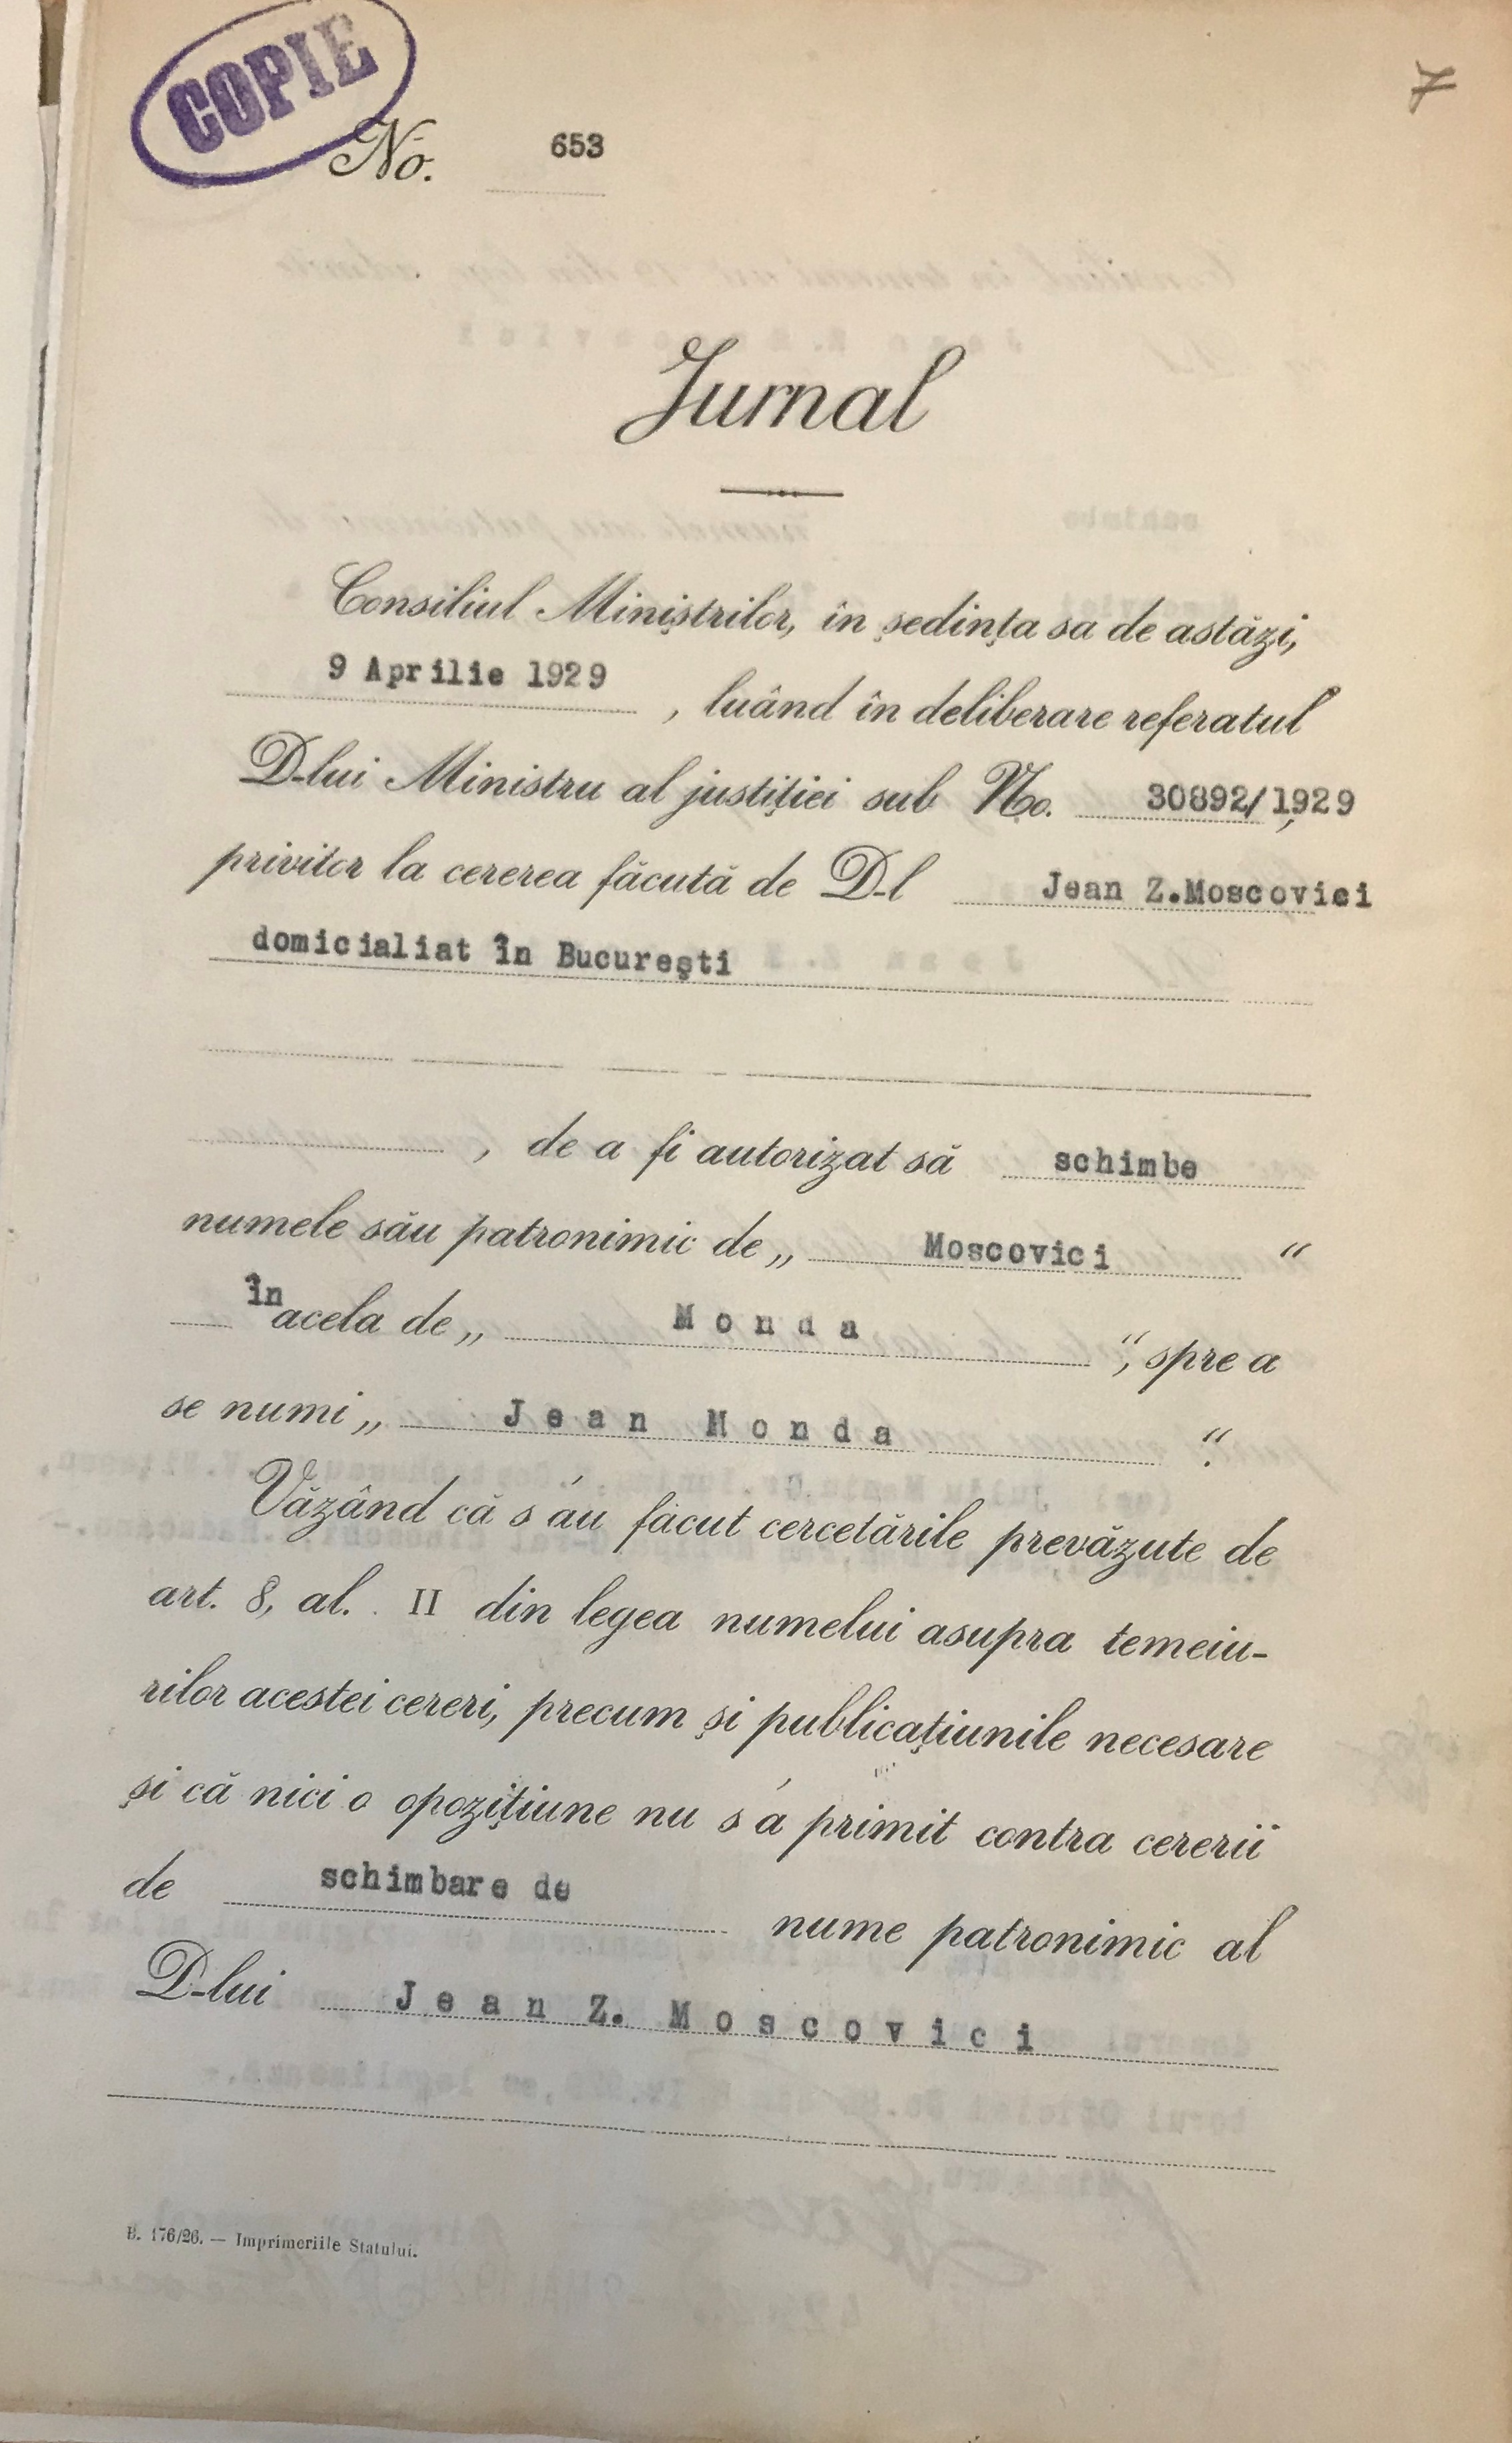 COPIE
7
No. 653
Jurnal
Consiliul Miniştrilor, în şedinţa sa de astăzi,
9 Aprilie 1929 , luând în deliberare referatul
D-lui Ministru al justiţiei sub No. 30892/1929
privitor la cererea făcută de D-l Jean Z.Moscovici
domicialiat în Bucureşti
, de a fi autorizat să schimbe
numele său patronimic de „ Moscovici “
în acela de „ Monda “, spre a
se numi „ Jean Monda “.
Văzând că s'au făcut cercetările prevăzute de
art. 8, al. II din legea numelui asupra temeiu-
rilor acestei cereri, precum şi publicaţiunile necesare
şi că nici o opoziţiune nu s'a primit contra cererii
de schimbare de nume patronimic al
D-lui Jean Z. Moscovici
B. 176/26. — Imprimeriile Statului.